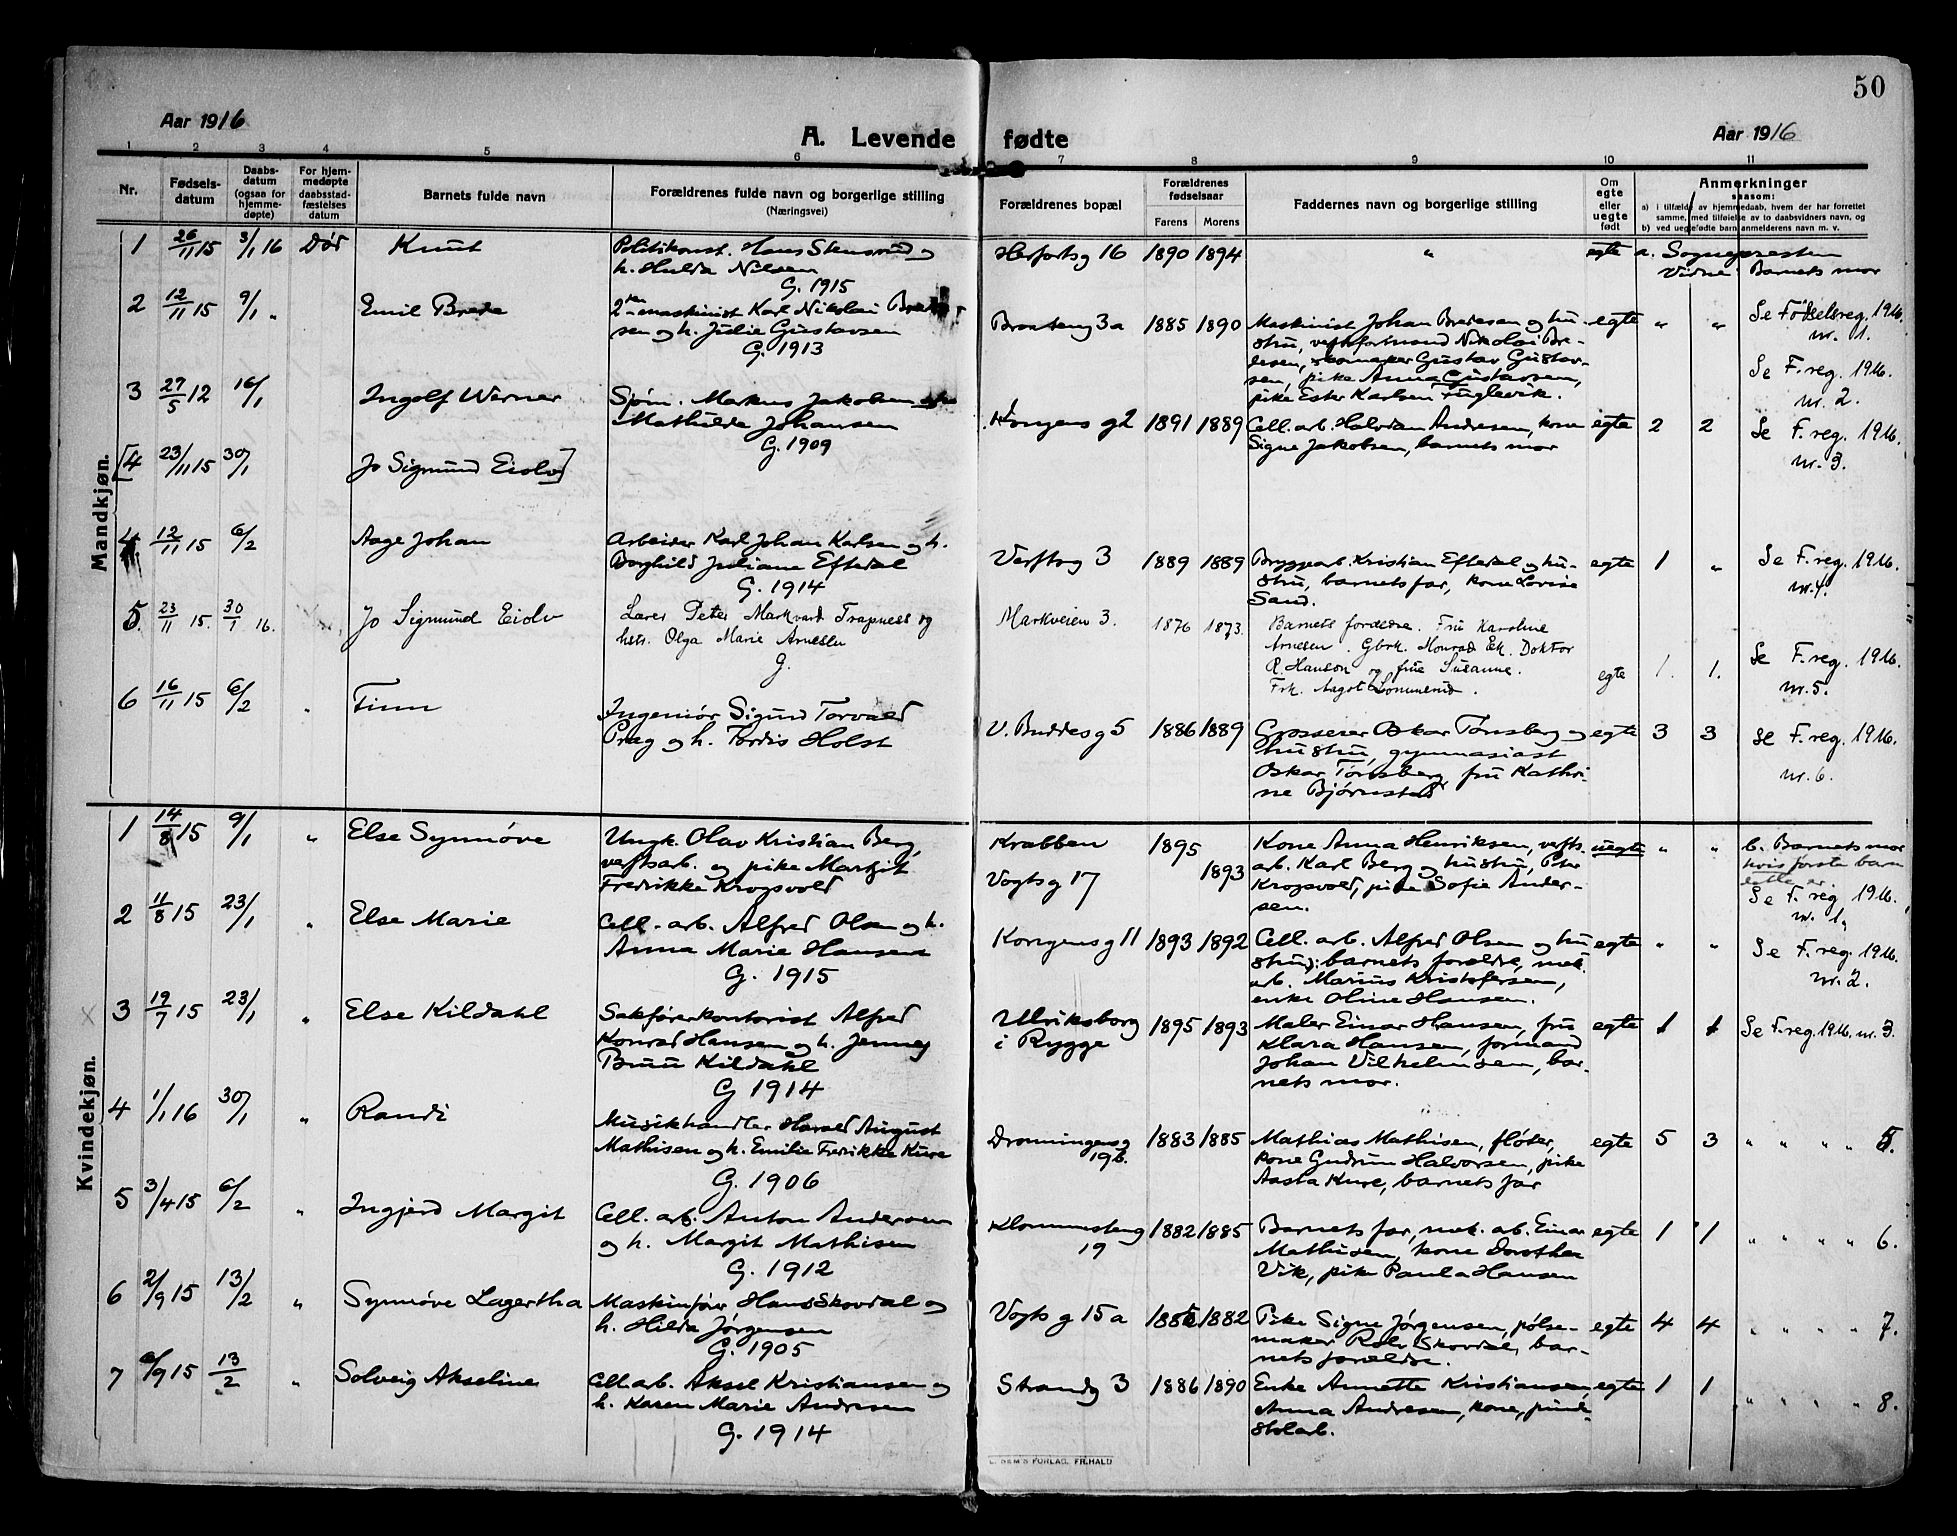 50
Aar 1916
A. Levende fødte
Aar 1916
1 2 3 4 5 6 7 8 9 10 11
Nr.
Fødsels-
datum
Daabs-
datum
(ogsaa for
hjemme-
døpte)
For hjem-
medøpte
daabsstad-
fæstelses
datum
Barnets fulde navn
Forældrenes fulde navn og borgerlige stilling
(Næringsvei)
Forældrenes bopæl
Forældrenes
fødselsaar
Farens Morens
Faddernes navn og borgerlige stilling
Om
egte
eller
uegte
født
Anmerkninger
saasom:
a) i tilfælde av hjemmedaab, hvem der har forrettet
samme, med tilføielse av to daabsvidners navn, og
b) ved uegtefødte barn anmelderens navn m. v.
Mandkjøn.
1 26/11 15 3/1 16 Død Knut
Politikonst. Hans Stensrud og
h. Hulda Nilsen
G. 1915
Herfortsg 16 1890 1894 " egte a. Sognepresten
Vidne: Barnets mor
2 12/11 15 9/1 " Emil Brede
2den maskinist Karl Nikolai Brede-
sen og h. Julie Gustavsen
G. 1913
Braateng 3a 1885 1890
Maskinist Johan Bredesen og hu-
stru, verftsformand Nikolai Bre-
desen, skomaker Gustav Gustav-
sen, pike Anna Gustavsen,
pike Ester Karlsen Fuglevik.
egte " "
Se Fødselsreg. 1916.
nr. 1.
Se F. reg. 1916.
nr. 2.
3 27/5 12 16/1 Ingolf Werner
Sjøm. Markus Jakobsen og h.
Mathilde Johansen
G. 1909
Kongens g 2 1891 1889
Cell. arb. Halvdan Andresen, kone
Signe Jakobsen, barnets mor
egte 2 2
Se F. reg. 1916.
nr. 3.
[4 23/11 15 30/1 Jo Sigmund Eiolv]
4 12/11 15 6/2 Aage Johan
Arbeider Karl Johan Karlsen og h.
Borghild Juliane Eftedal
G. 1914
Verftsg 3 1889 1889
Bryggearb. Kristian Eftedal og hu-
stru, barnets far, kone Lovise
Sand.
egte 1 "
Se F. reg. 1916.
nr. 4.
5 23/11 15. 30/1 16. Jo Sigmund Eiolv
Lærer Peter Markvard Trapness og
hstr. Olga Marie Arnesen
G.
Markveien 3. 1876 1873.
Barnets forældre. Fru Karoline
Arnesen. Gbrk. Monrad Ek. Doktor
R. Hanson og frue Susanne.
Frk. Aagot Lommerud.
egte 1. 1.
Se F. reg. 1916.
nr. 5.
6 16/11 15 6/2 " Finn
Ingeniør Sigurd Torvald
Prag og h. Tordis Holst
V. Buddes g 5 1886 1889
Grosserer Oskar Tønsberg og
hustru, gymnasiast
Oskar Tønsberg, fru Kathri-
ne Bjørnstad
egte 3 3
Se F. reg. 1916.
nr. 6.
Kvindekjøn.
1 14/8 15 9/1 " Else Synnøve
Ungk. Olav Kristian Berg,
verftsarb. og pike Margit
Fredrikke Krogsvold
Krabben 1895
Vogts g 17 1893
Kone Anna Henriksen, verfts-
arb. Karl Berg og hustru, Peter
Krogsvold, pike Sofie Ander-
sen.
uegte " "
b. Barnets mor
hvis første barn
dette er.
Se F. reg. 1916.
nr. 1.
2 11/8 15 23/1 " Else Marie
Cell. arb. Alfred Olsen og h.
Anna Marie Hansen
G. 1915
Kongens g 11 1893 1892
Cell. arb. Alfred Olsen og hu
stru; barnets forældre, mek.
arb. Marius Kristofersen,
enke Oline Hansen.
egte " "
Se F. reg. 1916.
nr. 2.
x 3 19/7 15 23/1 " Else Kildahl
Sakførerkontorist Alfred
Konrad Hansen og h. Jenney
Bruu Kildahl
G 1914
Ulriksborg
i Rygge
1895 1893
Maler Einar Hansen, fru
Klara Hansen, formand
Johan Vilhelmsen, bar-
nets mor.
egte 1 1
Se F. reg. 1916. nr. 3.
4 1/1 16 30/1 " Randi
Musikhandler Harald August
Mathisen og h. Emilie Fredrikke Kure
G. 1906
Dronningensg
19 b.
1883 1885
Mathias Mathisen, fløter,
kone Gudrun Halvorsen, pike
Aasta Kure, barnets far
egte 5 3 " " " " 5.
5 3/4 15 6/2 " Ingjerd Margit
Cell. arb. Anton Andersen
og h. Margit Mathisen
G. 1912
Klommesteng
19
1882 1885
Barnets far, mek. arb. Einar
Mathisen, kone Dorothea
Vik, pike Paula Hansen
egte 1 1 " " " " 6.
6 2/9 15 13/2 " Synnøve Lagertha
Maskinfører Hans Skovdal og
h. Hilda Jørgensen
G. 1905
Vogts g 15 a 1882
Pike Signe Jørgensen, pølse-
maker Rolv Skovdal, bar-
nets forældre.
egte 4 4 " " " " 7.
7 6/9 15 13/2 " Solveig Akseline
Cell. arb. Aksel Kristiansen og
h. Karen Marie Andresen
G. 1914
Strandg 3 1886 1890
Enke Annette Kristiansen,
Anna Andresen, kone,
egte 1 1 " " " " 8.
SEM'S FORLAG, FR.HALD